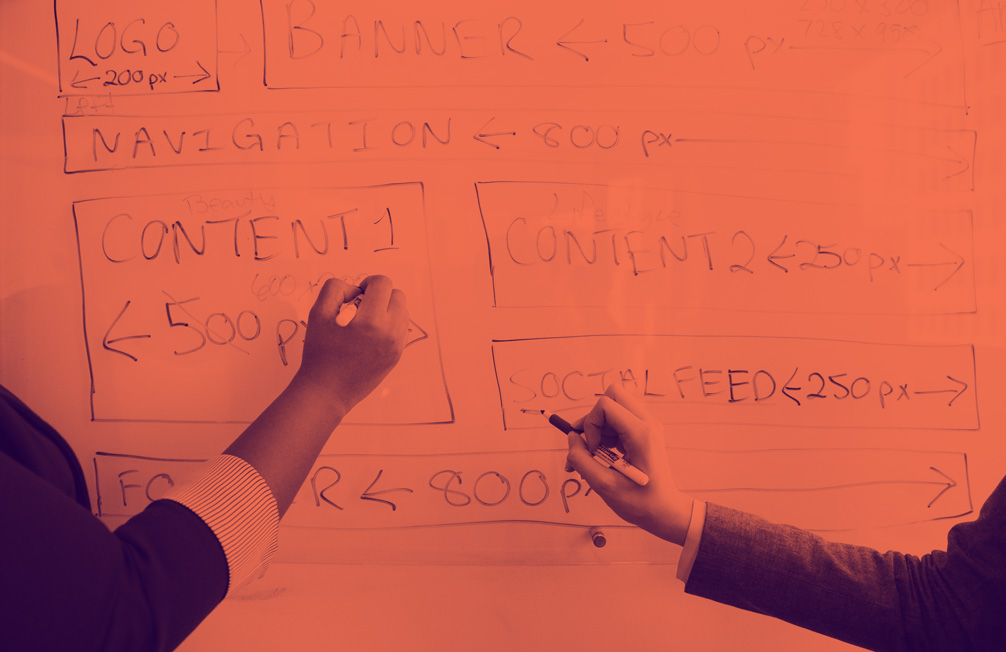 LOGO
200 px
BANNER 500 px
728 x 90
NAVIGATION 800 px
Beauty
CONTENT 1
500 p
600
CONTENT 2 250 px
SOCIAL FEED 250 px
FO R 800 px